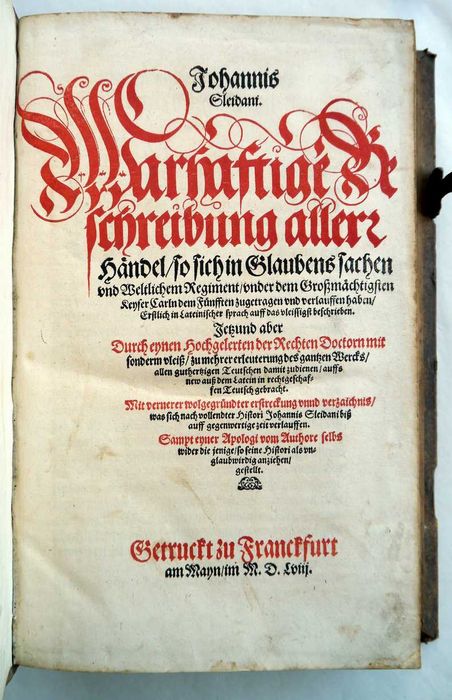 Johannis
Sleidani.
Warhaftige Be
schreibung aller
Händel/so sich in Glaubens sachen
vnd Weltlichem Regiment/vnder dem Großmächtigsten
Keyser Carln dem Fünfften zugetragen vnd verlauffen haben/
Erstlich in Lateinischer sprach auff das vleissigst beschrieben.
Jetzund aber
Durch eynen Hochgelerten der Rechten Doctorn mit
sonderm vleiß/zu mehrer erleuterung des gantzen Wercks/
allen guthertzigen Teutschen damit zudienen/auffs
new auß dem Latein in rechtgeschaf-
fen Teutsch gebracht.
Mit vernerer wolgegründter erstreckung vnnd verzaichnis/
was sich nach vollendter Histori Johannis Sleidani biß
auff gegenwertige zeit verlauffen.
Sampt eyner Apologi vom Authore selbs
wider die jenige/so seine Histori als vn-
glaubwirdig anziehen/
gestellt.
Getruckt zu Franckfurt
am Mayn/im M. D. Lviij.